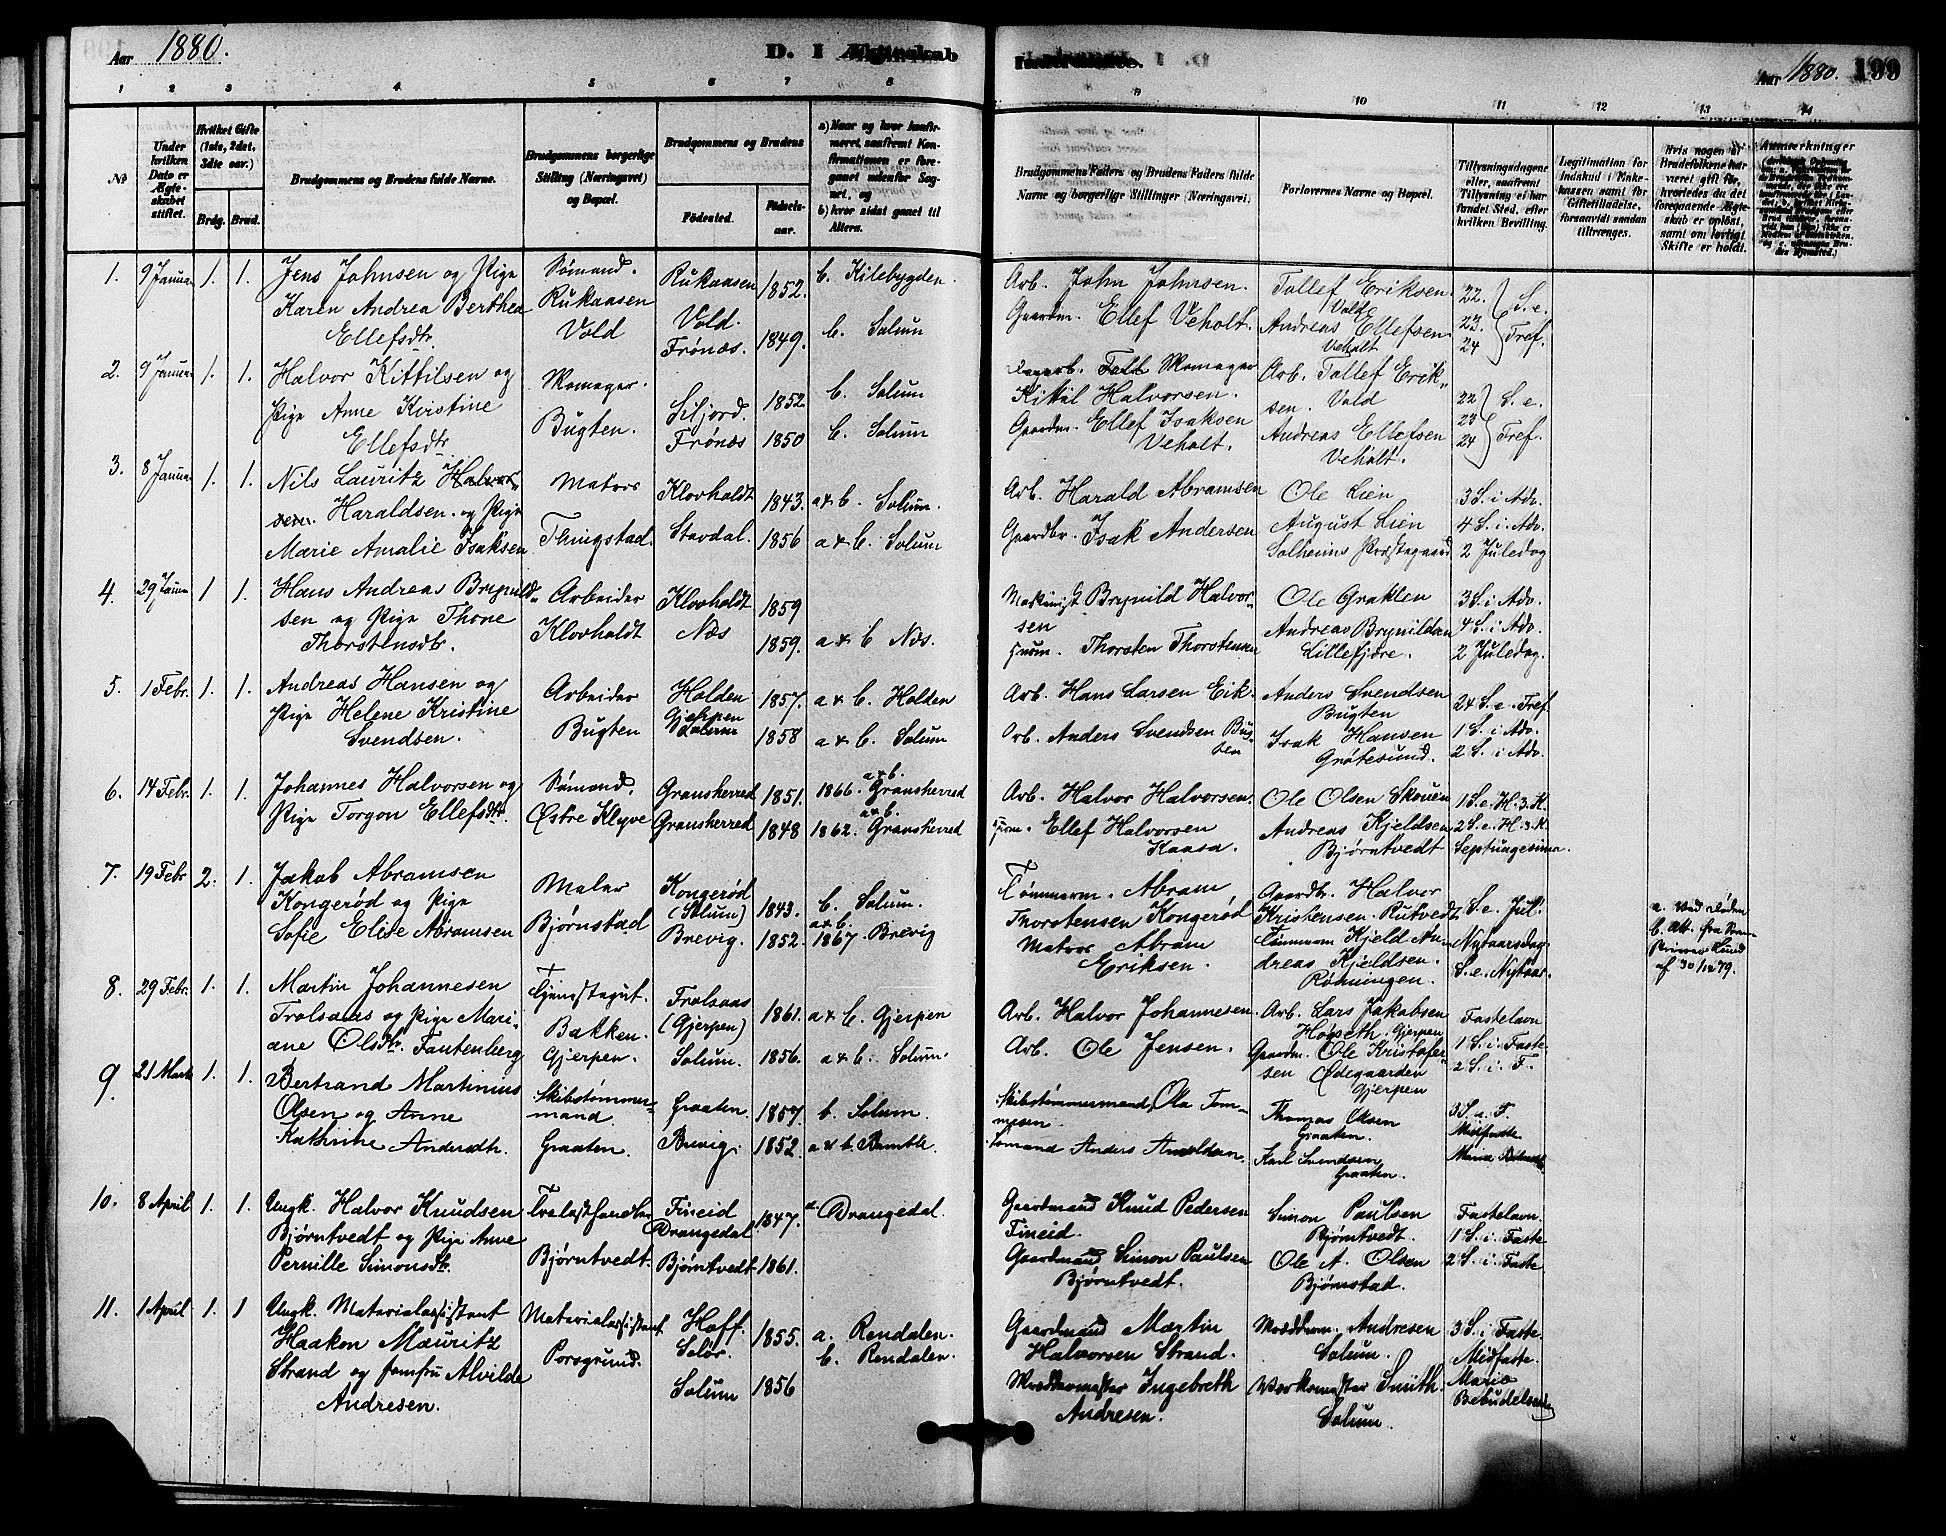 Aar 1880.
D. I Ægteskab
indtraadte.
Aar 1880. 199
1 2 3 4 5 6 7 8 9 10 11 12 13 14
No
Under hvilken Dato er Ægteskabet stiftet.
Hvilket Gifte (1ste, 2det, 3die osv.)
Brdg. Brud.
Brudgommens og Brudens fulde Navne.
Brudgommens borgerlige Stilling (Næringsvei) og Bopæl.
Brudgommens og Brudens
Fødested. Fødselsaar.
a) Naar og hvor konfirmeret, saafremt Konfirmationen er foregaaet udenfor Sognet, og
b) hvor sidst gaaet til Alters.
Brudgommens Faders og Brudens Faders fulde Navne og borgerlige Stillinger (Næringsvei).
Forlovernes Navne og Bopæl.
Tillysningsdagene eller, saafremt Tillysning ei har fundet Sted, efter hvilken Bevilling.
Legitimation for Indskud i Enkekassen samt for Giftetilladelse, forsaavidt saadan tiltrænges.
Hvis nogen af Brudefolkene har været gift før, hvorledes da det foregaaende Ægteskab er opløst, samt om lovligt Skifte er holdt.
Anmerkninger
1. 9 Januar 1. 1. Jens Johnsen og Pige
Karen Andrea Berthea
Ellefsdtr.
Sømand.
Rukaasen
Vold
Rukaasen 1852. b. Kilebygden.
Vold.
Frönæs. 1849. b. Solum
Arb. John Johnsen.
Gaardm. Ellef Veholt.
Tollef Eriksen
Vold
Andreas Ellefsen
Veholt
22. 23. 24 S. e. Tref.
2. 9 Januar 1. 1. Halvor Kittilsen og
Pige Anne Kirstine
Ellefsdtr
Skomager.
Bugten.
Siljord. 1852 b. Solum
Frönæs 1850 b. Solum
Skomager
Kittil Halvorsen.
Gaardm. Ellef Isaksen
Veholt.
Arb. Tollef Eriksen. Vold
Andreas Ellefsen
Veholt.
22 23 24 S. e. Tref.
3. 8 Januar 1. 1. Nils Lauritz Halvorsen. Haraldsen. og Pige
Marie Amalie Isaksen
Matros
Thingstad.
Klovholdt 1843. a & b. Solum.
Stavdal. 1856 a & b. Solum
Arb. Harald Abramsen
Gaardbr. Isak Andersen
Ole Lien
August Lien
Solheims Præstegaard
3 S. i Adv.
4 S. i Adv.
2 Juledag
4. 29 Janu 1 1. Hans Andreas Brynildsen og Pige Thone
Thorstensdtr.
Arbeider
Klovholdt
Klovholdt 1859
Næs 1859. a & b Næs.
Maskinist Brynild Halvorsen
Thorsten Thorstensen
Ole Graklen
Andreas Brynildsen
Lillefjære.
3 S. i Adv.
4 S. i Adv.
2 Juledag.
5. 1 Febr. 1. 1. Andreas Hansen og
Pige Helene Kristine
Svendsen.
Arbeider
Bugten
Holden 1857. a & b. Holden
Gjerpen
Solum 1858 a & b. Solum
Arb. Hans Larsen Eik.
Arb. Anders Svendsen Bugten
Anders Svendsen
Bugten
Isak Hansen
Grötesund.
24 S. e. Tref
1 S. i Adv.
2 S. i Adv.
6. 14 Febr. 1. 1. Johannes Halvorsen og
Pige Torgon Ellefsdtr.
Sømand.
Østre Klyve
Gransherred 1851. 1866. a & b. Gransherred
Gransherred 1848 1862. a & b. Gransherred
Arb. Halvor Halvorsen.
Ellef Halvorsen
Kaasa.
Ole Olsen Skouen
Andreas Kjeldsen
Bjørntvedt
1 S. e. H. 3 K.
2 S. e. H. 3 K.
Septuagesima.
7. 19 Febr 2. 1. Jakob Abramsen
Kongerød og Pige
Sofie Elise Abramsen
Maler
Bjørnstad
Kongerød
(Solum) 1843. b. Solum.
Brevig. 1852. a & b. 1867. Brevig
Tömmerm. Abram
Thorstensen Kongerød
Matros Abram
Eriksen.
Gaardbr. Halvor
Kristensen. Rutvedt
Tömmerm Kjeld Andreas Kjeldsen.
Röhningen.
S. e. Jul.
Nytaarsdag
S. e. Nytaar.
a. Ved Døden
b. Att. fra
af 30/12 79.
8. 29 Febr. 1. 1. Martin Johannesen
Trolsaas og Pige Mariane Olsdtr. Fantenberg
Tjenestegut.
Bakken.
Gjerpen.
Trolsaas
(Gjerpen) 1861. a & b. Gjerpen
Solum. 1856. a & b. Solum.
Arb. Halvor Johannesen.
Arb. Ole Jensen.
Arb. Lars Jakobsen
Høgseth. Gjerpen
Gaardm. Ole Kristofersen Ødegaarden
Gjerpen
Fastelavn
1 S. i Faste
2 S. i F.
9. 21 Marts 1. 1. Bertrand Martinius
Olsen og Anne
Kathrine Andersdtr.
Skibstømmermand.
Graaten.
Graaten. 1857. b. Solum.
Brevig. 1852. a & b. Bamble.
Skibstømmermand Ola Tommesen
Sømand Anders Arnoldsen.
Thomas Olsen
Graaten.
Karl Svendsen
Graaten.
3 S. i F.
Midfaste
Maria Bebud.
10. 8 April 1. 1. Ungk. Halvor Knudsen
Bjørntvedt og Pige Anne
Pernille Simonsdtr.
Trælasthandler
Bjørntvedt.
Fineid
Drangedal 1847. a Drangedal.
Bjørntvedt 1861.
Gaardmand Knud Pedersen
Fineid.
Gaardmand Simon Paulsen
Bjørntvedt.
Simon Paulsen
Bjørntvedt.
Ole A. Olsen
Bjørnstad.
Fastelavn
1 S. i Faste
2 S. i Faste
11. 1 April 1. 1 Ungk. Materialassistant
Haakon Mauritz
Strand og Jomfru Alvilde
Andresen.
Materialassistant
Porsgrund.
Hoff.
Solør. 1855. a. Rendalen.
b. Rendalen.
Solum 1856
Gaardmand Martin
Halvorsen Strand.
Møddermester Ingebreth
Andresen.
Andresen
Solum.
Værksmester Smith.
Solum.
3 S. i Faste.
Midfaste.
Mariæ
Bebudelsesdag